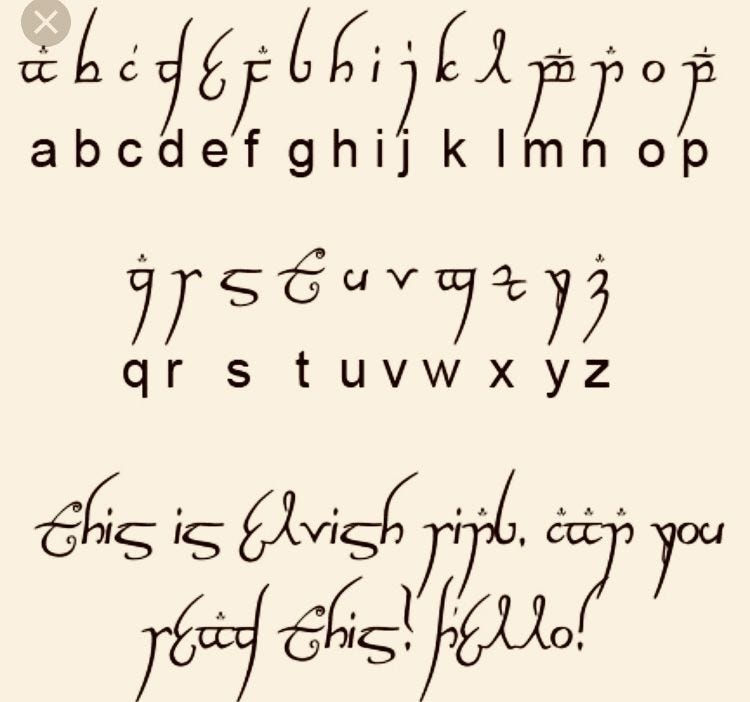 a b c d e f g h i j k l m n o p
a b c d e f g h i j k l m n o p
q r s t u v w x y z
q r s t u v w x y z
this is elvish ring. can you
read this! Hello!